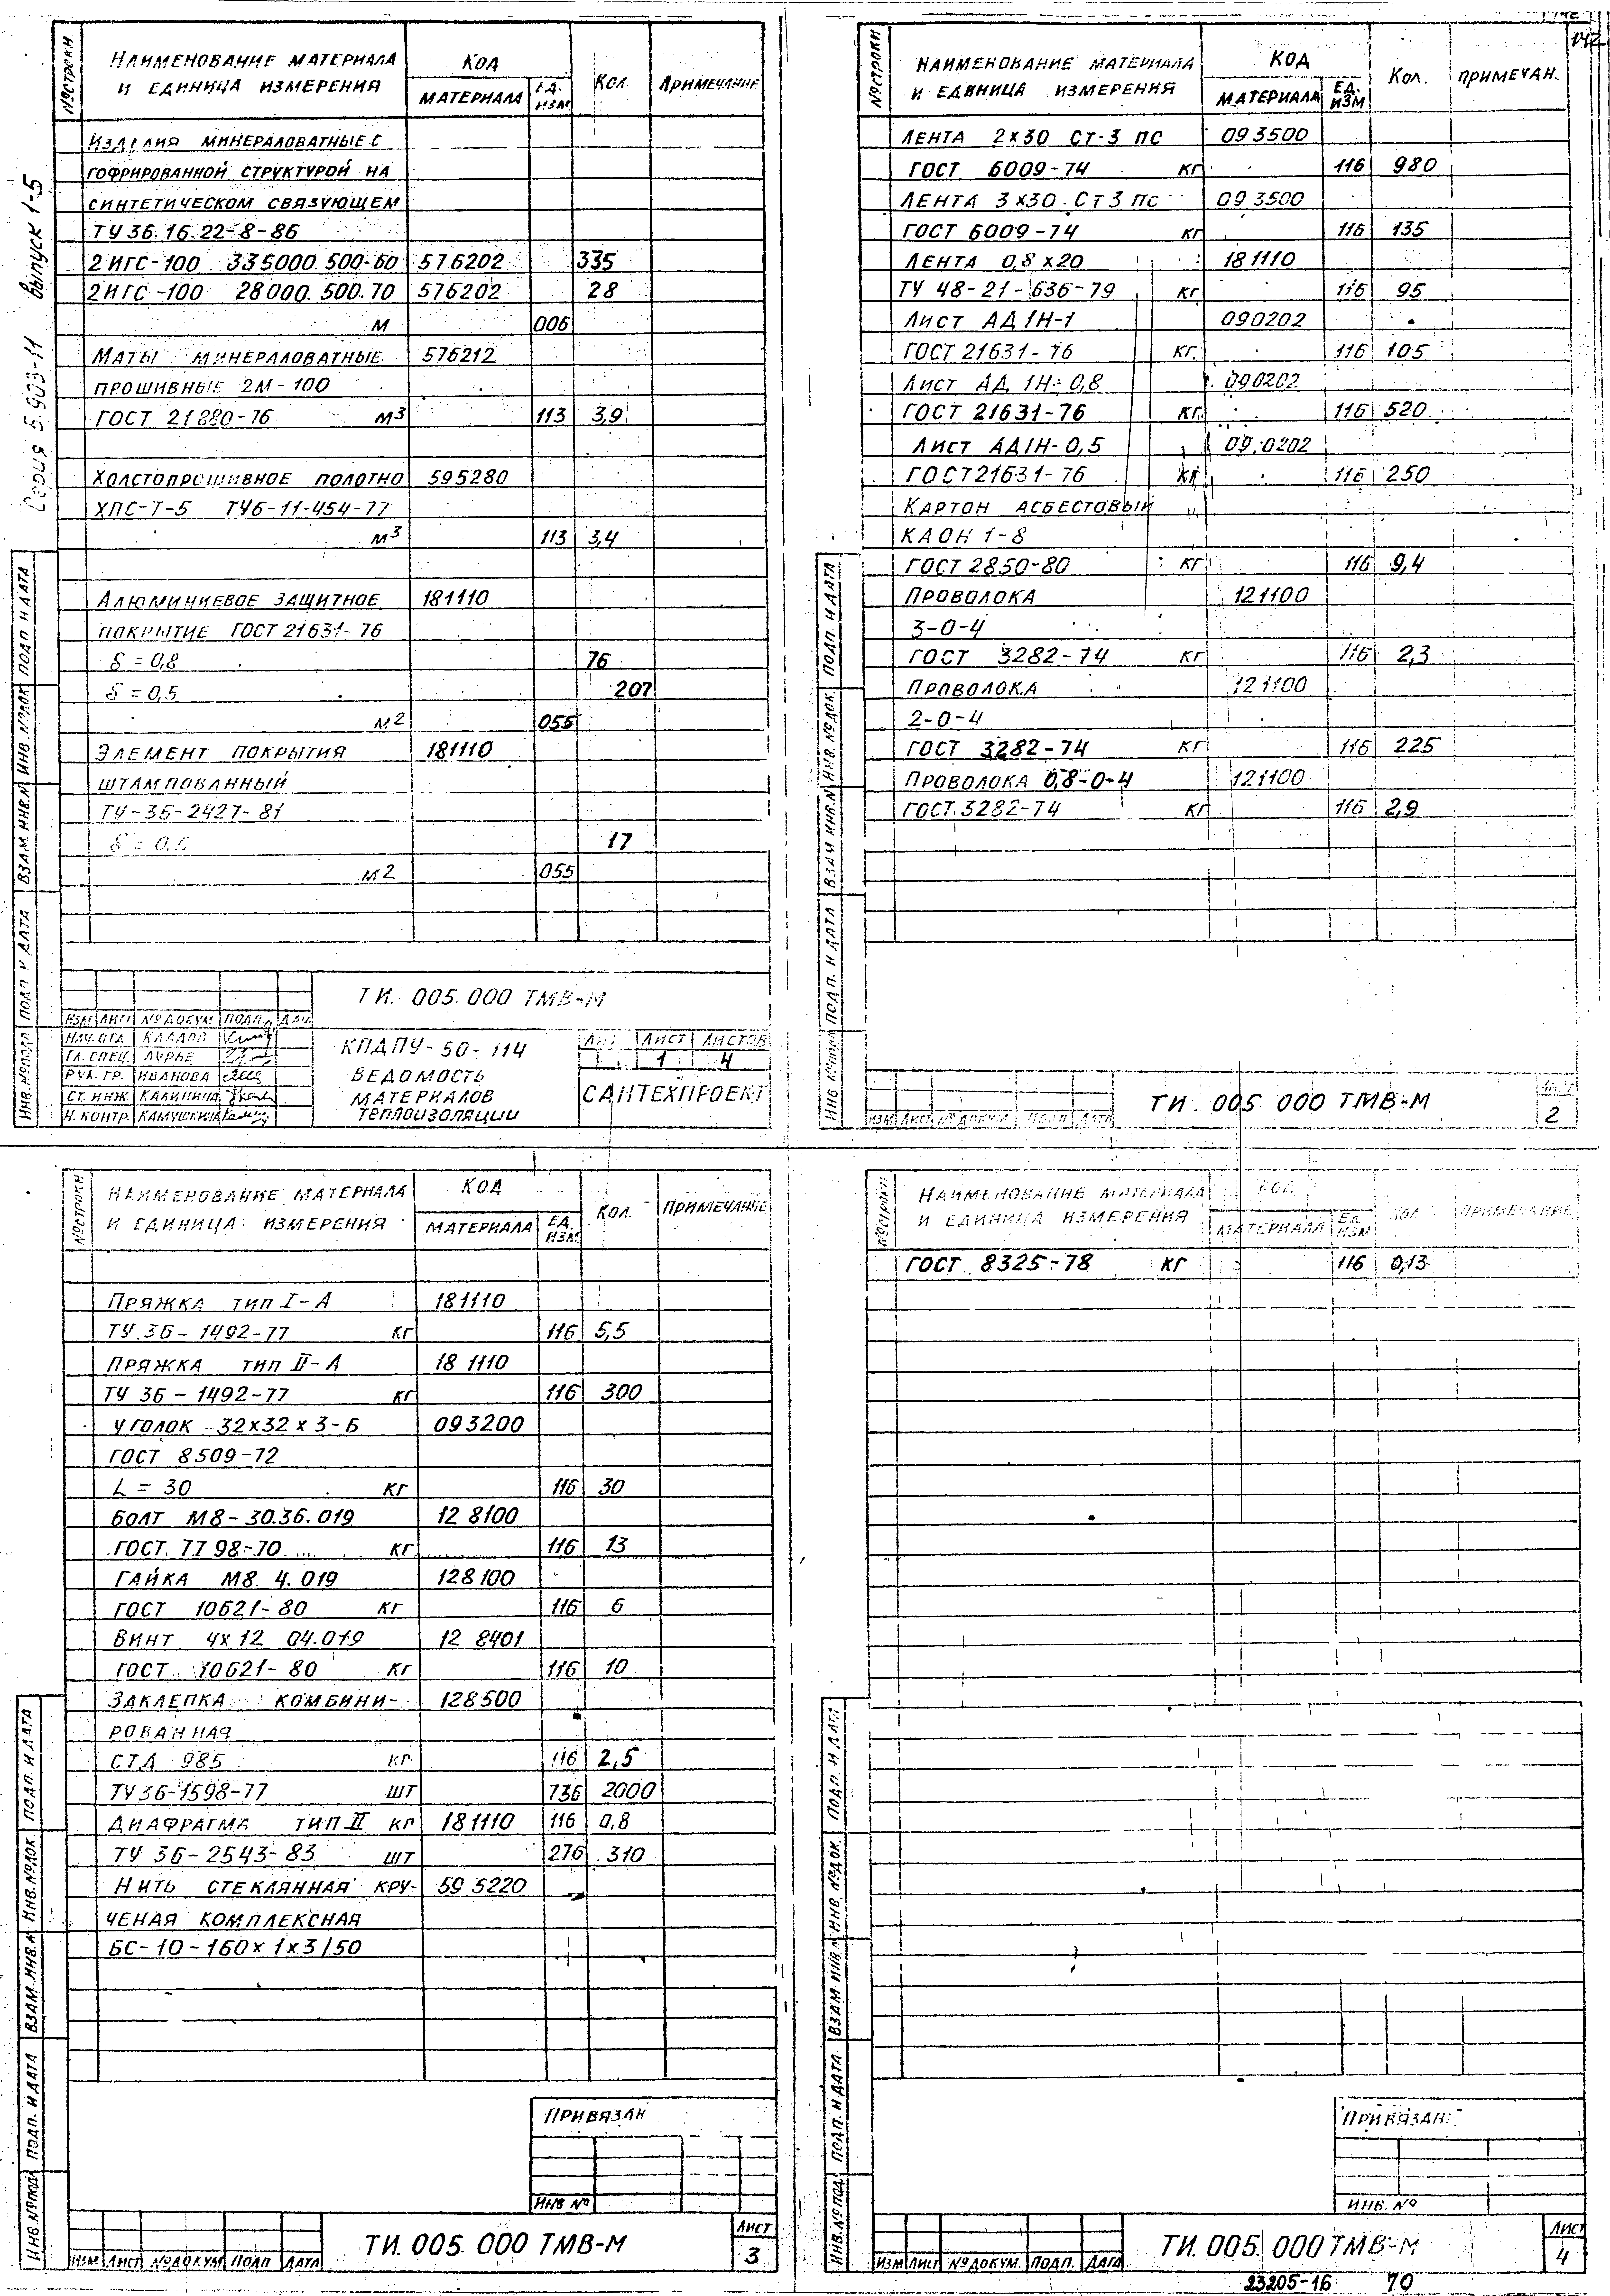 Серия 5.903-11 выпуск 1-5
№ строки
Наименование материала и единица измерения
Код
материала
Ед. изм
Кол.
Примечание
Изделия минераловатные с
гофрированной структурой на
синтетическом связующем
ТУ 36.16.22-8-86
2ИГС-100 335000.500-60 576202 335
2ИГС-100 28000.500.70 576202 28
м 006
Маты минераловатные 576212
прошивные 2М-100
ГОСТ 21880-76 м3 113 3,9
Холстопрошивное полотно 595280
ХПС-Т-5 ТУ6-11-454-77
м3 113 3,4
Алюминиевое защитное 181110
покрытие ГОСТ 21631-76
δ = 0,8 76
δ = 0,5 207
м2 055
Элемент покрытия 181110
штампованный
ТУ-36-2427-81
17
м2 055
Подп. и дата
Взам. инв. №
Инв. № док.
Подп. и дата
Инв. № подл
ТИ. 005.000 ТМВ-М
Изм Лист № докум Подп. Дата
Нач. отд.
Гл. спец. Лурье
Рук. гр. Иванова
Ст. инж. Калинина
Н. контр. Камушкина
КПДПУ-50-114
Ведомость
материалов
теплоизоляции
Лит. Лист Листов
1 4
Сантехпроект
142
№ строки
Наименование материала и единица измерения
Код
материала
Ед. изм
Кол.
Примечан.
Лента 2х30 Ст-3 пс 093500
ГОСТ 6009-74 кг 116 980
Лента 3х30 Ст 3 пс 093500
ГОСТ 6009-74 кг 116 135
Лента 0,8х20 181110
ТУ 48-21-636-79 кг 116 95
Лист АД 1Н-1 090202
ГОСТ 21631-76 кг. 116 105
Лист АД 1Н-0,8 090202
ГОСТ 21631-76 кг. 116 520
Лист АД1Н-0,5 09.0202
ГОСТ 21631-76 кг 116 250
Картон асбестовый
КАОН 1-8
ГОСТ 2850-80 кг 116 9,4
Проволока 121100
3-0-4
ГОСТ 3282-74 кг 116 2,3
Проволока 121100
2-0-4
ГОСТ 3282-74 кг 116 225
Проволока 0,8-0-4 121100
ГОСТ.3282-74 кг 116 2,9
Подп. и дата
Инв. № док.
Взам инв. №
Подп. и дата
Инв № подл
Изм Лист № докум Подп Дата
ТИ. 005. 000 ТМВ-М
Лист
2
№ строки
Наименование материала и единица измерения
Код
материала
Ед. изм
Кол.
Примечание
Пряжка тип I-А 181110
ТУ.36-1492-77 кг 116 5,5
Пряжка тип II-А 18 1110
ТУ 36-1492-77 кг 116 300
Уголок 32х32х3-Б 093200
ГОСТ 8509-72
L = 30 кг 116 30
Болт М8-30.36.019 12 8100
ГОСТ. 7798-70 кг 116 13
Гайка М8. 4. 019 128100
ГОСТ 10621-80 кг 116 6
Винт 4х12 04.019 12 8401
ГОСТ 10621-80 кг 116 10
Заклепка комбини- 128500
рованная
СТД 985 кг 116 2,5
ТУ36-1598-77 шт 736 2000
Диафрагма тип II кг 181110 116 0,8
ТУ 36-2543-83 шт 276 310
Нить стеклянная кру- 59 5220
ченая комплексная
БС-10-160х1х3/50
Подп. и дата
Инв. № док.
Взам. инв. №
Подп. и дата
Инв. № подл
Привязан
Инв №
Изм Лист № докум Подп Дата
ТИ. 005. 000 ТМВ-М
Лист
3
№ строки
Наименование материала и единица измерения
Код
материала
Ед. изм
Кол
Примечание
ГОСТ 8325-78 кг 116 0,13
Подп. и дата
Инв. № док.
Взам инв. №
Подп. и дата
Инв. № подл
Привязан:
Инв. №
Изм Лист № докум. Подп. Дата
ТИ. 005. 000 ТМВ-М
Лист
4
23205-16 70